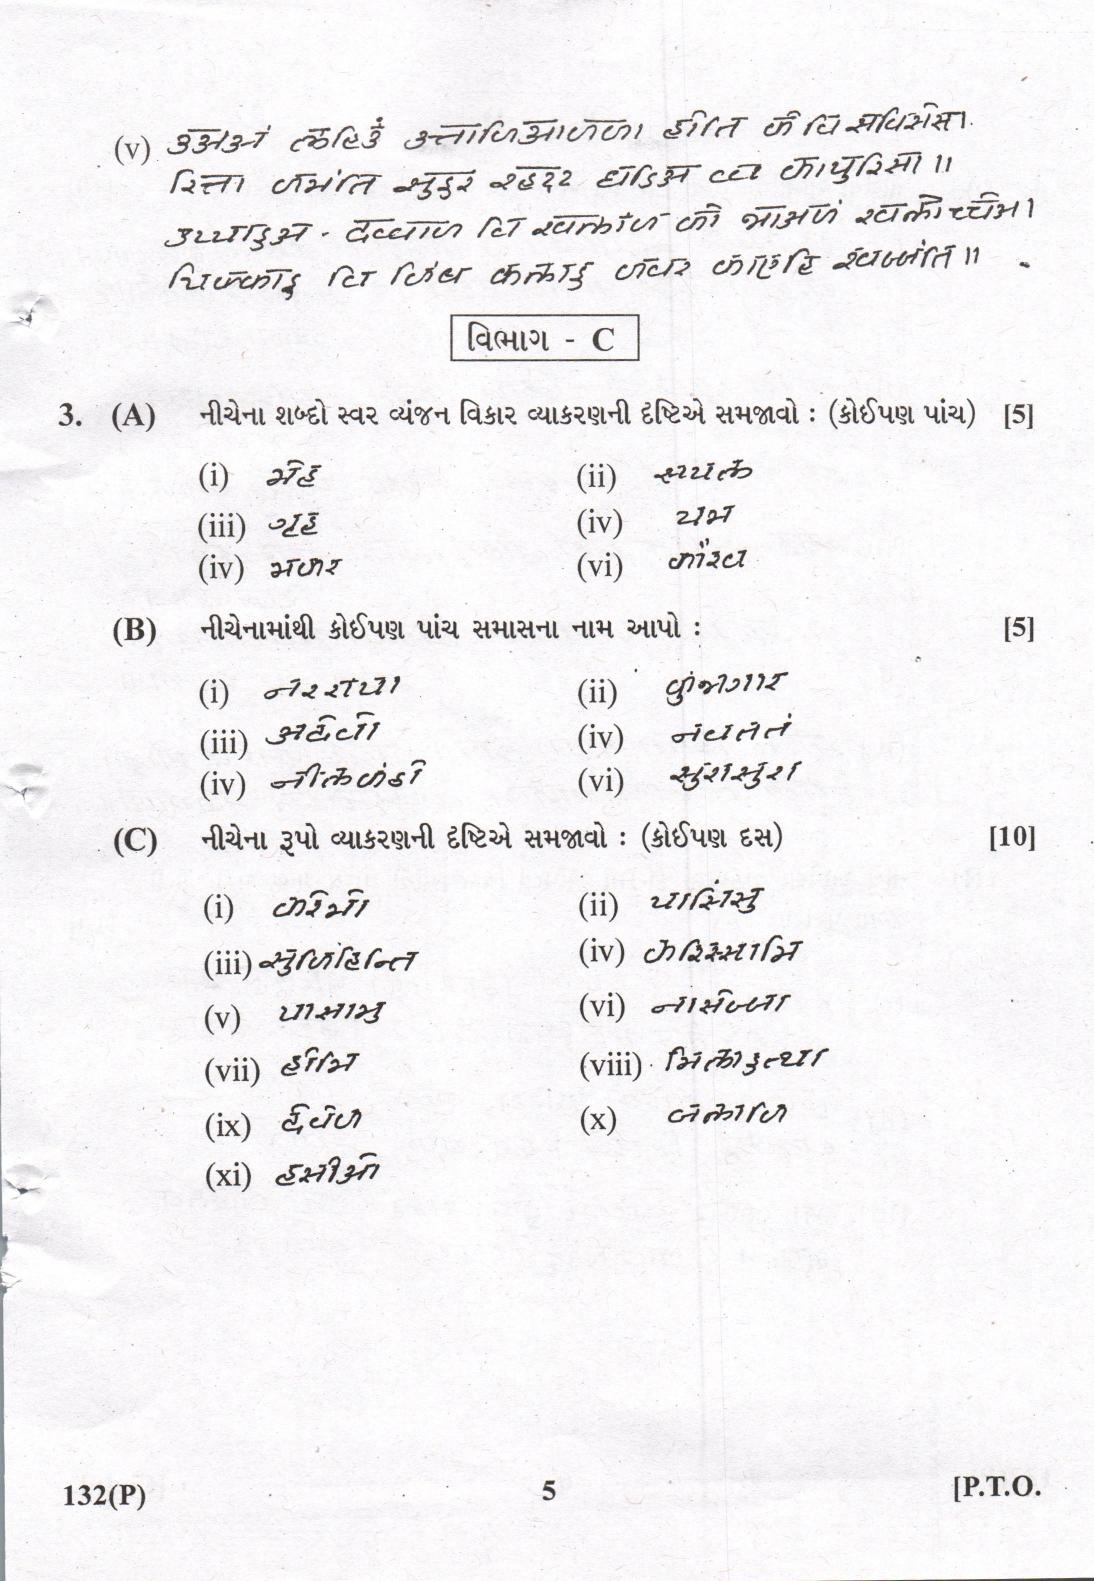 (v) उअअं लहिउं उत्ताणिआणणा होंति के वि सविसेसं।
रित्ता णमंति सुइरं रहट्ट घडिअ व्व कापुरिसा॥
उप्पाइअ - दव्वाण वि खलाण को भाअणं खलो च्चेअ।
पिक्काइ वि णिंब फलाइ णवर काएहि खज्जंति॥
વિભાગ - C
3. (A) નીચેના શબ્દો સ્વર વ્યંજન વિકાર વ્યાકરણની દૃષ્ટિએ સમજાવો : (કોઈપણ પાંચ) [5]
(i) मेह (ii) सयल
(iii) गृह (iv) यम
(iv) मणर (vi) कौरव
(B) નીચેનામાંથી કોઈપણ પાંચ સમાસના નામ આપો : [5]
(i) नरराया (ii) कुंभगार
(iii) अदेवो (iv) नवततं
(iv) नीलकंठो (vi) सुरासुरा
(C) નીચેના રૂપો વ્યાકરણની દૃષ્ટિએ સમજાવો : (કોઈપણ દસ) [10]
(i) करिमो (ii) पासिंसु
(iii) सुणिहिन्ति (iv) करिस्सामि
(v) पासामु (vi)
(vii) होमि (viii) मिलाइत्था
(ix) देवेण (x) बलाणि
(xi) हसीओ
132(P) 5 [P.T.O.